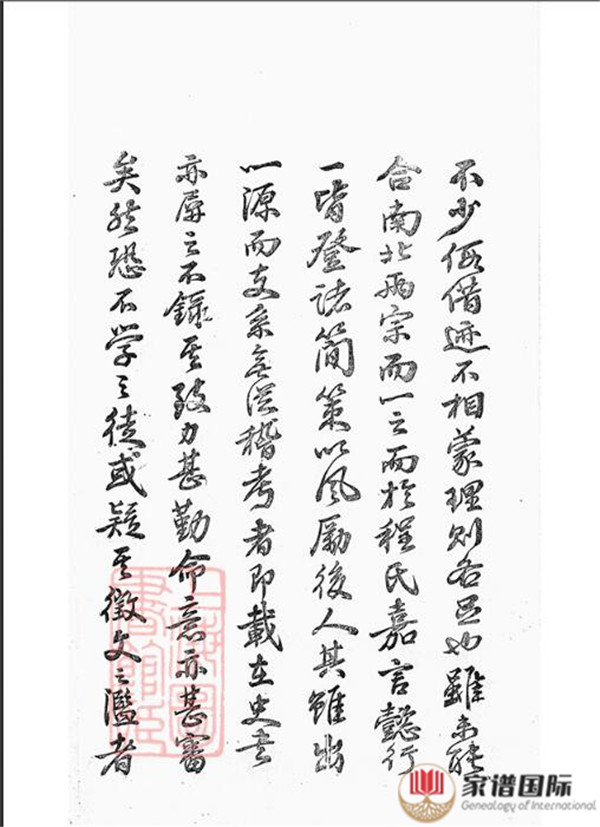 不少假借迹不相蒙理则各足也雖未能
合南北兩宗而一之而於程氏嘉言懿行
一皆登諸簡策以風勵後人其雖出
一源而支系無從稽考者即載在史書
亦屏之不錄其致力甚勤命意亦甚審
矣然恐不学之徒或疑其徵文之濫者
上海圖書館藏
家谱国际
Genealogy of International